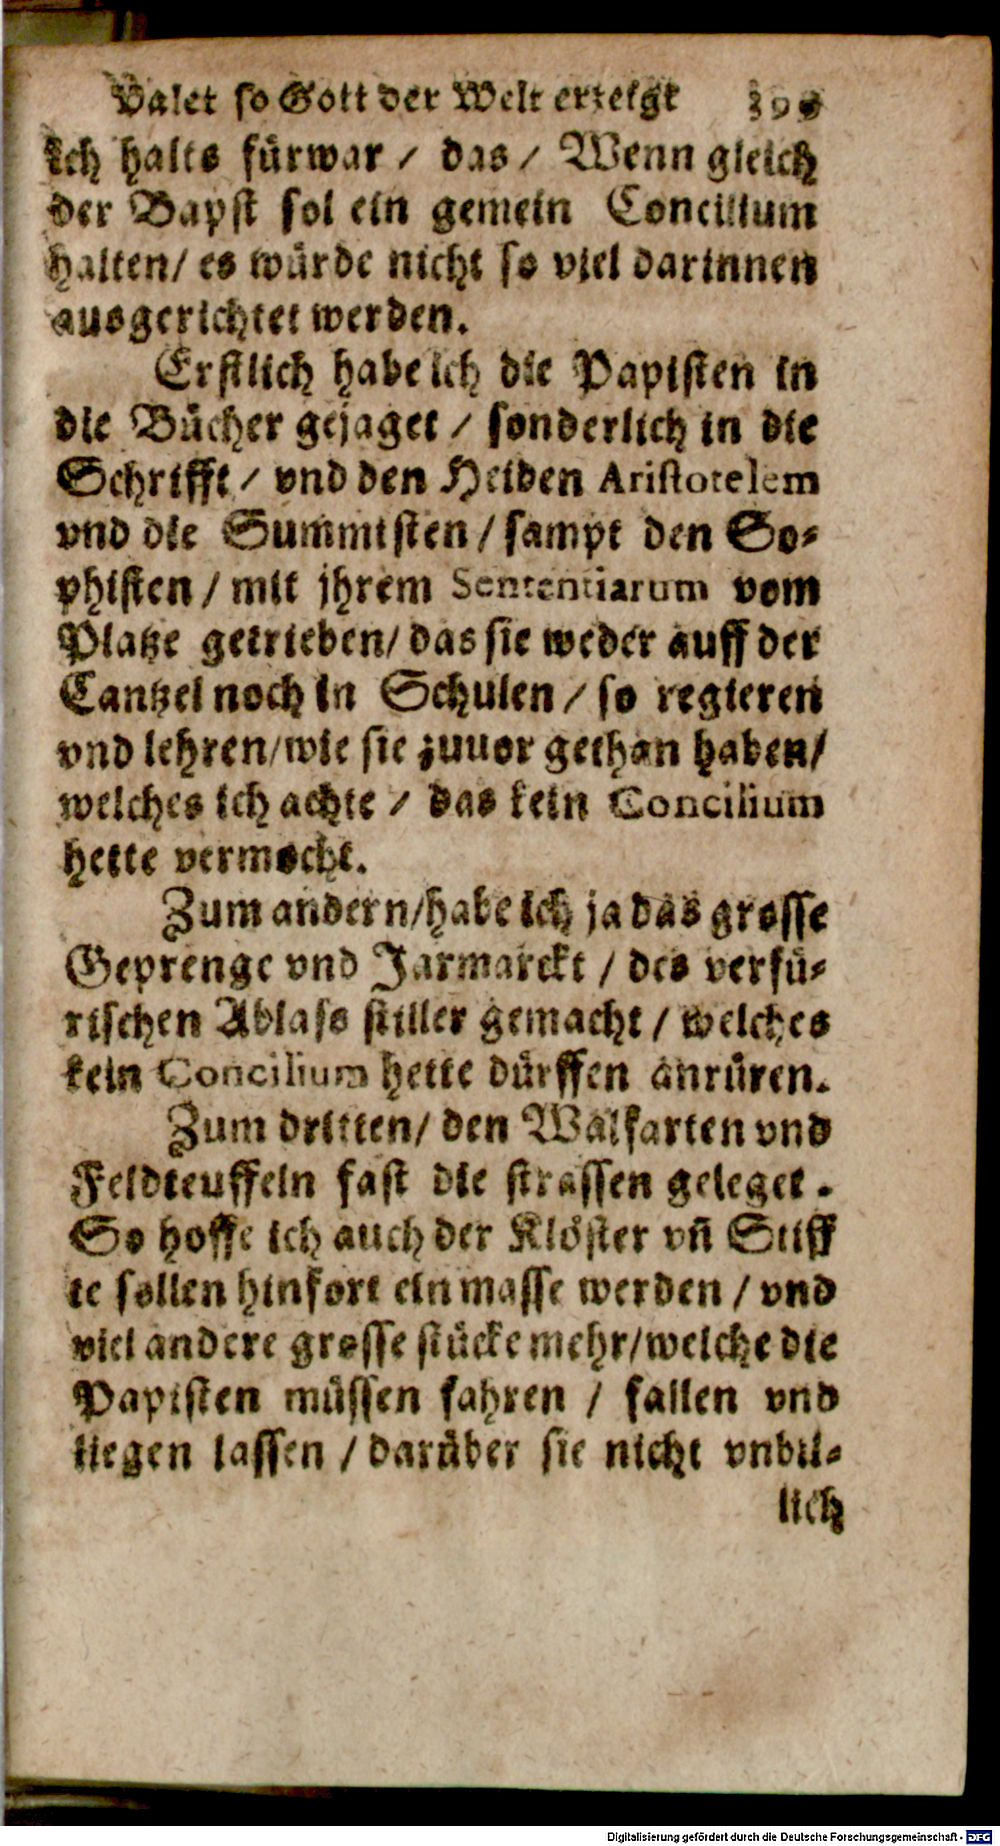 Valet so Gott der Welt erzeigt
Ich halts fürwar / das / Wenn gleich
der Bapst sol ein gemein Concilium
halten / es würde nicht so viel darinnen
ausgerichtet werden.
Erstlich habe ich die Papisten in
die Bücher gejaget / sonderlich in die
Schrifft / vnd den Heiden Aristotelem
vnd die Summisten / sampt den So-
phisten / mit jhrem Sententiarum vom
Platze getrieben / das sie weder auff der
Cantzel noch in Schulen / so regieren
vnd lehren / wie sie zuuor gethan haben /
welches ich achte / das kein Concilium
hette vermocht.
Zum andern / habe ich ja das grosse
Geprenge vnd Jarmarckt / des verfü-
rischen Ablass stiller gemacht / welches
kein Concilium hette dürffen anrüren.
Zum dritten / den Walfarten vnd
Feldteuffeln fast die strassen geleget.
So hoffe ich auch der Klöster vñ Stiff
te sollen hinfort ein masse werden / vnd
viel andere grosse stücke mehr / welche die
Papisten müssen fahren / fallen vnd
liegen lassen / darüber sie nicht vnbil-
lich
Digitalisierung gefördert durch die Deutsche Forschungsgemeinschaft - DFG